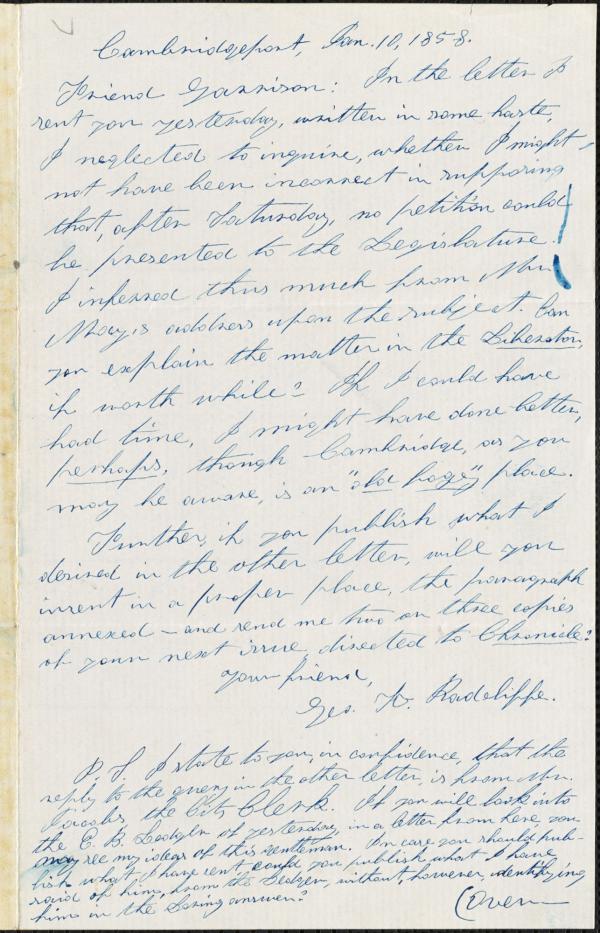 Cambridgeport, Jan. 10, 1858.
Friend Garrison: In the letter I
sent you yesterday, written in some haste,
I neglected to inquire, whether I might
not have been incorrect in supposing
that, after Saturday, no petition could
be presented to the Legislature.
I inferred thus much from Mr.
May's address upon the subject. Can
you explain the matter in the Liberator,
if worth while? If I could have
had time, I might have done better,
perhaps, though Cambridge, as you
may be aware, is an "old fogey" place.
Further, if you publish what I
desired in the other letter, will you
insert in a proper place, the paragraph
annexed – and send me two or three copies
of your next issue, directed to Chronicle?
Your friend,
Geo. W. Radcliffe.
P.S. I state to you, in confidence, that the
reply to the query in the other letter, is from Mr.
Jacobs, the City Clerk. If you will look into
the E. B. Ledger of yesterday, in a letter from here, you
may see my ideas of this gentleman. In case you should pub-
lish what I have sent could you publish what I have
said of him, from the Ledger, without, however, identifying
him in the answer?
(Over